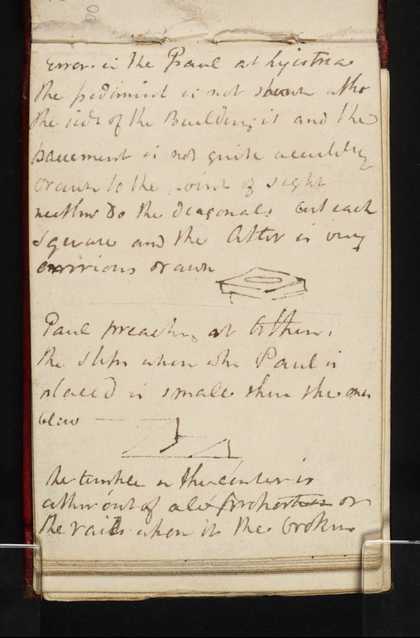 Error in the Paul at Lystra
the pediment is not shown
the side of the Building it and the
pavement is not quite
drawn to the point of sight
neither do the diagonals cut each
square and the Alter is very
drawn
Paul preaching at Athens
the steps when the Paul is
placed is smaller than the ones
below
the temple in the center is
out of all or
the rails when is the broken